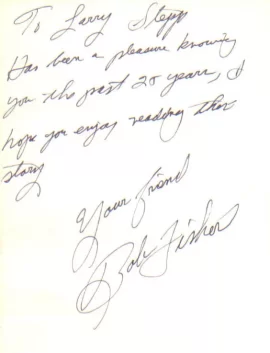 To Larry Stepp
Has been a pleasure knowing
you the past 20 years, I
hope you enjoy reading this
story
Your friend
Bob Fisher